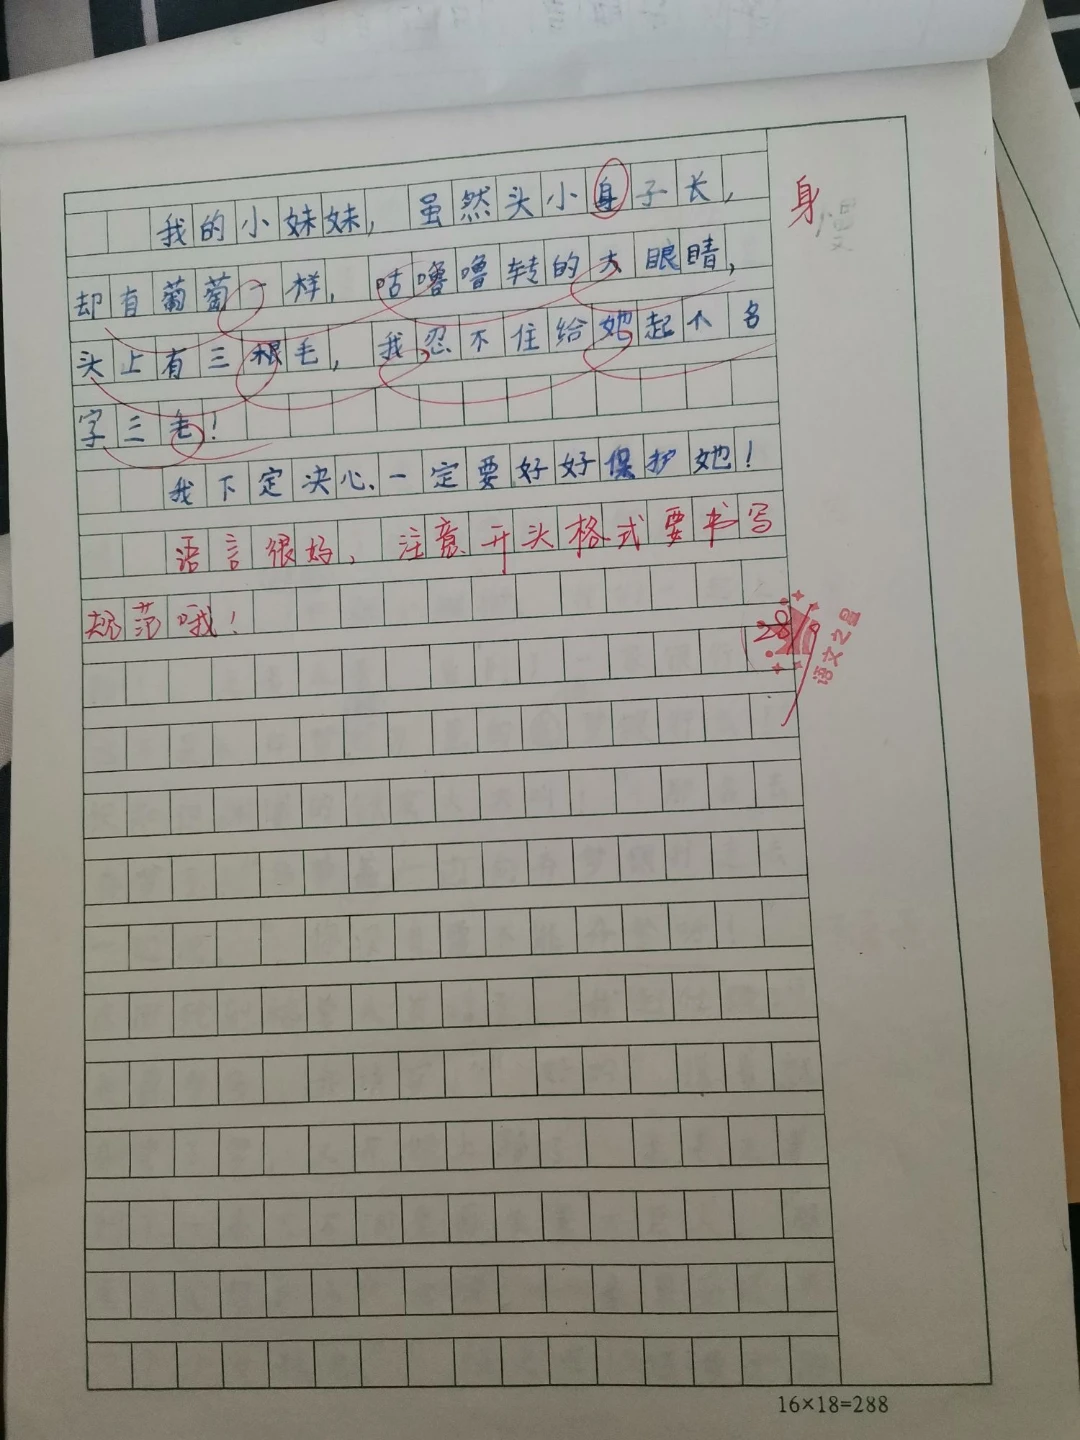 我的小妹妹，虽然头小身子长，
却有葡萄一样，咕噜噜转的大眼睛，
头上有三根毛，我忍不住给她起个名
字三毛！
我下定决心、一定要好好保护她！
语言很好，注意开头格式要书写
规范哦！
身
28
语文之星
16×18=288